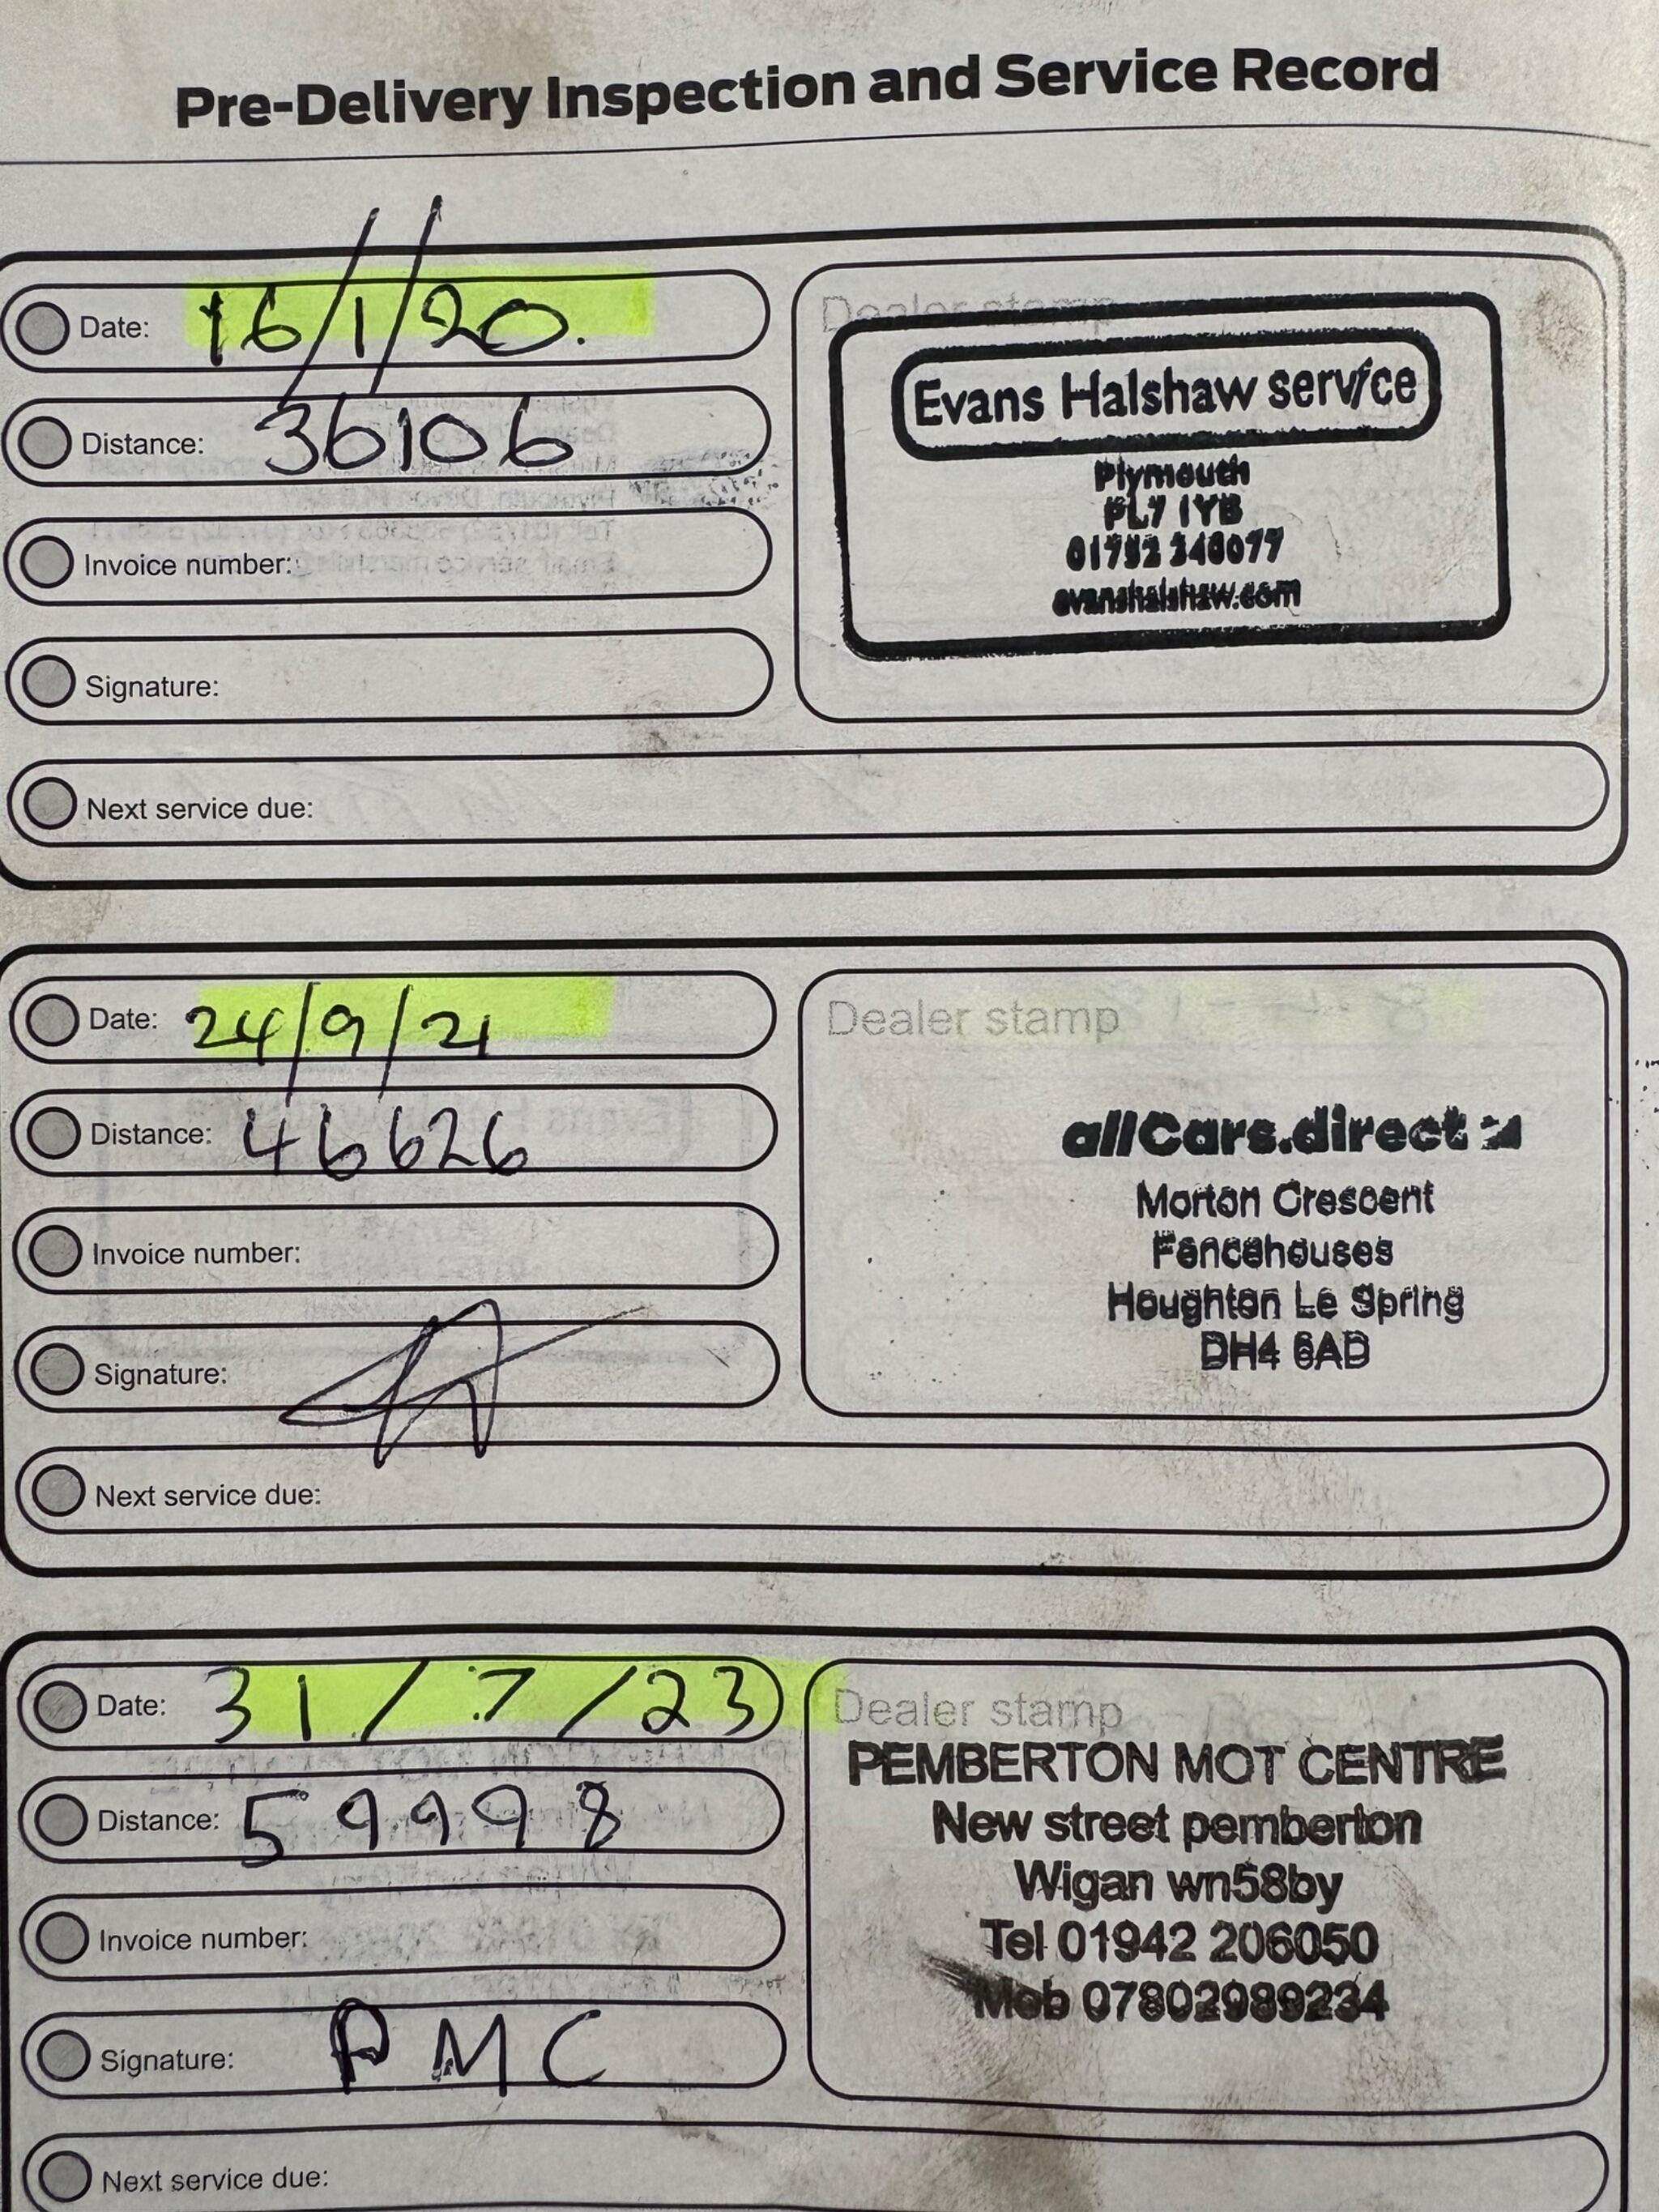 Pre-Delivery Inspection and Service Record
Date: 16/1/20.
Distance: 36106
Invoice number:
Signature:
Next service due:
Dealer stamp
Evans Halshaw service
Plymouth
PL7 1YB
evanshalshaw.com
Date: 24/9/21
Distance: 46626
Invoice number:
Signature:
Next service due:
Dealer stamp
allCars.direct
Morton Crescent
Fencehouses
Houghton Le Spring
DH4 6AD
Date: 31/7/23
Distance: 59998
Invoice number:
Signature: PMC
Next service due:
Dealer stamp
PEMBERTON MOT CENTRE
New street pemberton
Wigan wn58by
Tel 01942 206050
Mob 07802989234